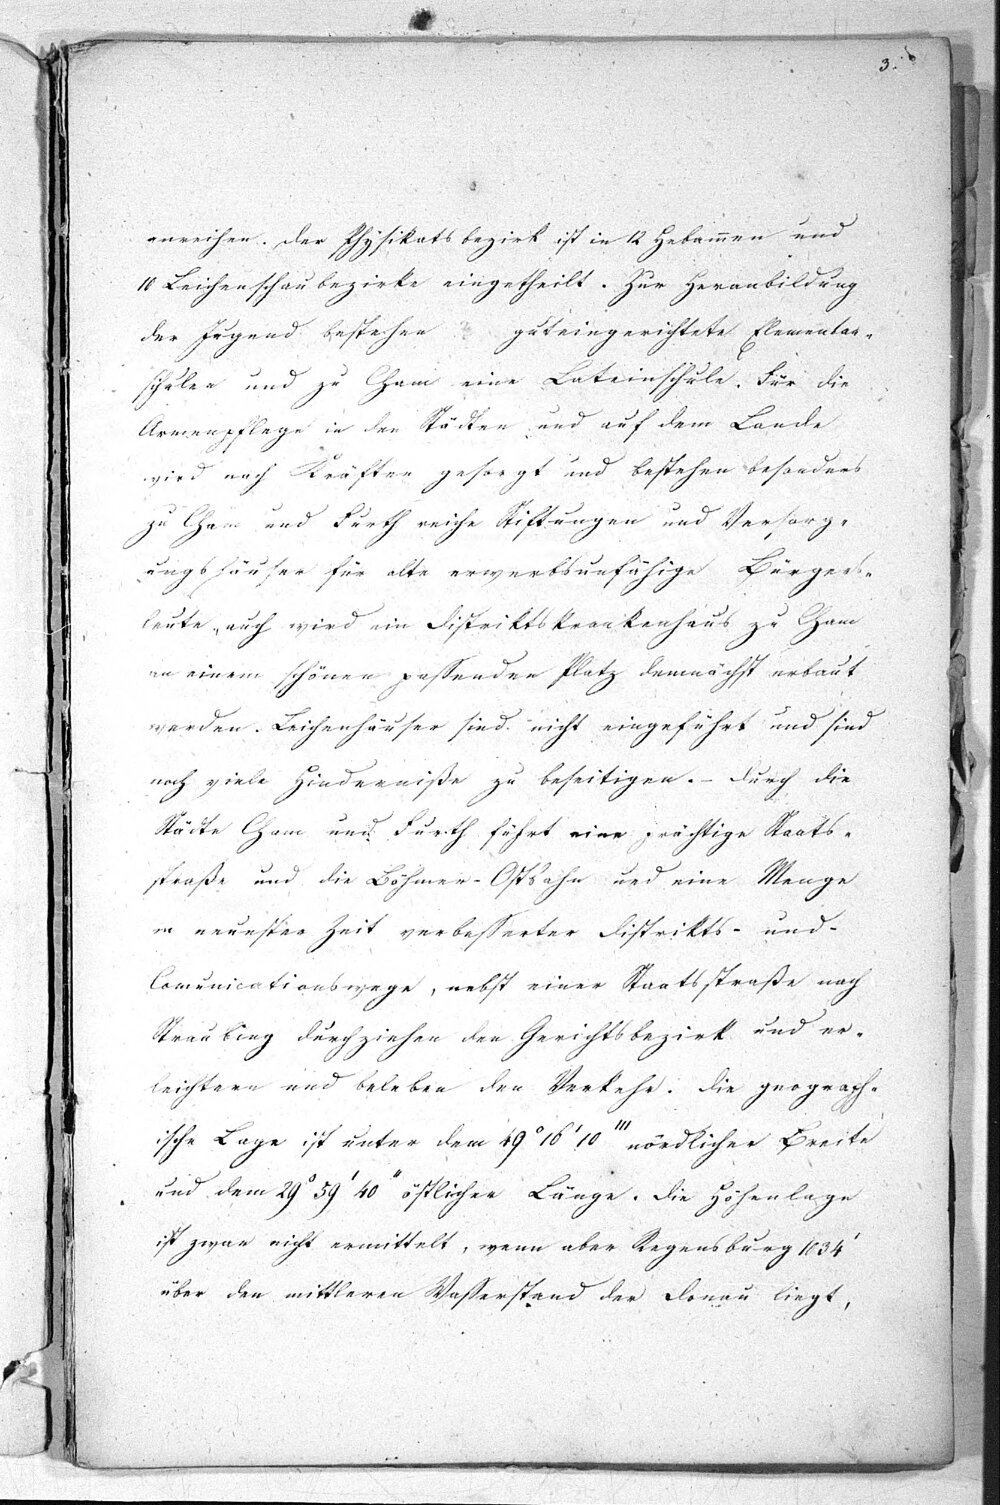 3.
anreihen. Der Physikatsbezirk ist in 12 Hebam̄en und
10 Leichenschaubezirke eingetheilt. Zur Heranbildung
der Jugend bestehen guteingerichtete Elementar-
schulen und zu Cham eine Lateinschule. Für die
Armenpflege in den Städten und auf dem Lande
wird nach Kräften gesorgt und bestehen besonders
zu Cham und Furth reiche Stiftungen und Versorg-
ungshäuser für alte erwerbsunfähige Bürgers-
leute, auch wird ein Distriktskrankenhaus zu Cham
an einem schönen passenden Platz demnächst erbaut
werden. Leichenhäuser sind nicht eingeführt und sind
noch viele Hinderniße zu beseitigen. – Durch die
Städte Cham und Furth führt eine prächtige Staats-
straße und die Böhmer-Ostbahn und eine Menge
in neuester Zeit verbesserter Distrikts- und
Com̄unicationswege, nebst einer Staatsstraße nach
Straubing durchziehen den Gerichtsbezirk und er-
leichtern und beleben den Verkehr. Die geograph-
ische Lage ist unter dem 49° 16' 10''' nördlicher Breite
und dem 29° 59' 40'' östlicher Länge. Die Höhenlage
ist zwar nicht ermittelt, wenn aber Regensburg 1034'
über den mittleren Wasserstand der Donau liegt,